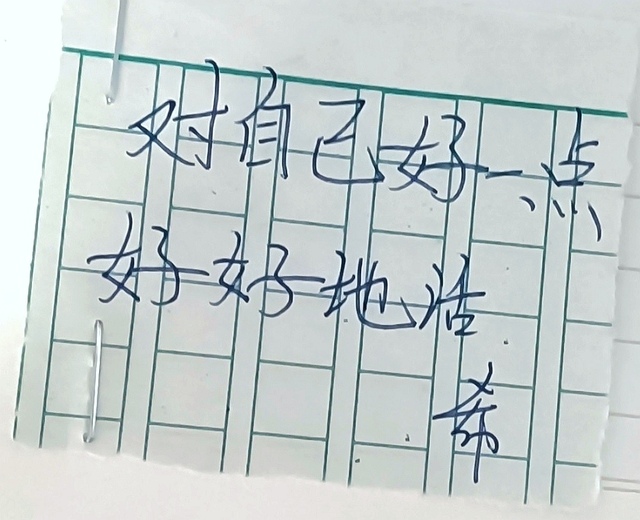 对自己好一点
好好地活
希